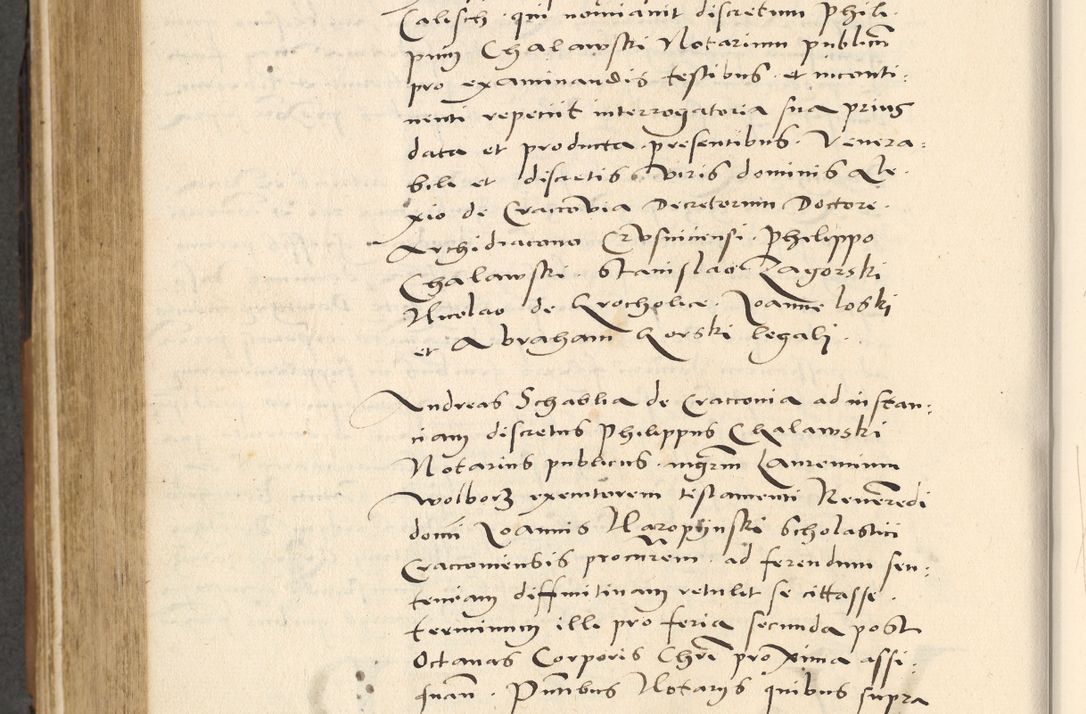 Calisch · qui nominavit discretum Phili-
pum Chalawski Notarium publicū
pro examinandis testibus · et inconti=
nenti repetiit interrogatoria sua prius
data et producta · presentibus · Venera=
bili et discretis viris dominis Ale-
xio de Cracovia Decretorum Doctore ·
Archidiacono · Philippo
Chalawski · Stanislao Zagorski
Nicolao de Krocholice · Joanne loski
et Abraham Gorski legali ·
Andreas Schablia de Cracconia ad instan=
ciam discretus Philippus Chalawski
Notarius publicus · mgrm Laurencium
Wolborz executorem testamenti Reueredi
domi Joannis Naropynski Scholastici
Cracouiensis procurem · ad ferendum sen=
tenciam diffinitiuam retulit se cittasse ·
terminum illi pro feria secunda post
Octauas Corporis Chri proxima assi-
gnan · Pntibus Notarijs quibus supra